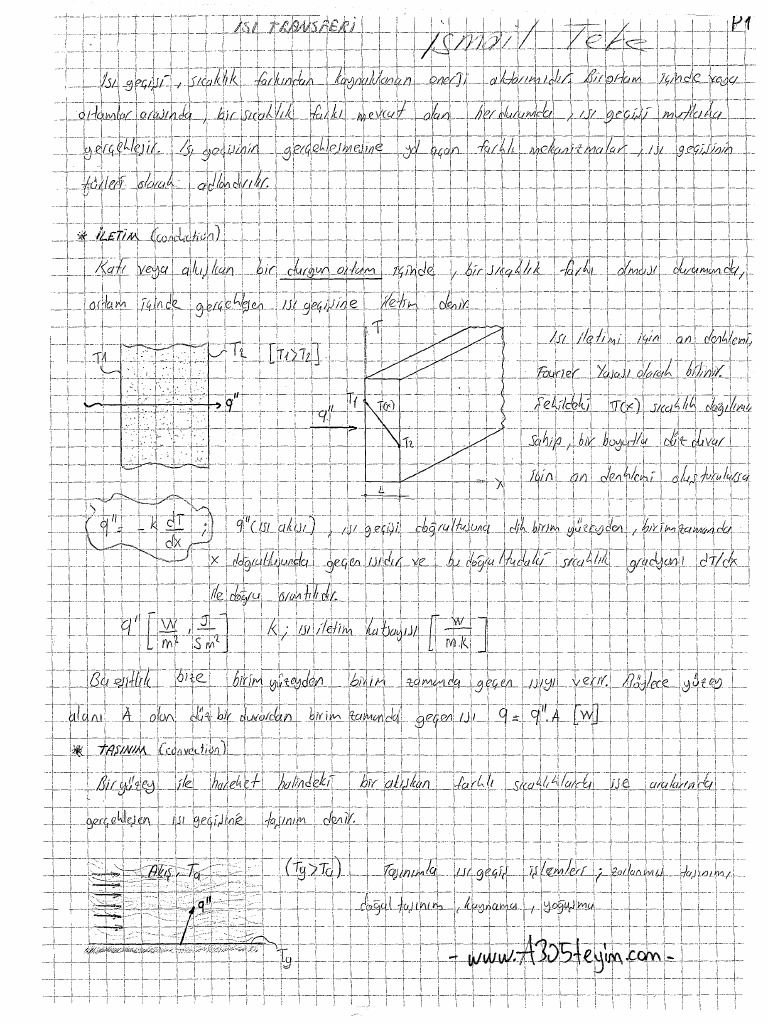 ISI TRANSFERİ
P1
İsmail Teke
Isı geçişi, sıcaklık farkından kaynaklanan enerji aktarımıdır. Bir ortam içinde veya
ortamlar arasında, bir sıcaklık farkı mevcut olan her durumda, ısı geçişi mutlaka
gerçekleşir. Isı geçişinin gerçekleşmesine yol açan farklı mekanizmalar, ısı geçişinin
türleri olarak adlandırılır.
* İLETİM (conduction)
Katı veya akışkan bir durgun ortam içinde, bir sıcaklık farkı olması durumunda,
ortam içinde gerçekleşen ısı geçişine iletim denir.
T1 T2 [T1>T2]
q"
T
T1 T(x)
q"
T2
L x
Isı iletimi için an denklemi,
Fourier Yasası olarak bilinir.
Şekildeki T(x) sıcaklık dağılımına
sahip, bir boyutlu düz duvar
için an denklemi oluşturulursa
q" = -k dT/dx ; q" (ısı akısı), ısı geçişi doğrultusuna dik birim yüzeyden, birim zamanda
x doğrultusunda geçen ısıdır ve bu doğrultudaki sıcaklık gradyanı dT/dx
ile doğru orantılıdır.
q" [W/m², J/sm²] k; ısı iletim katsayısı [W/m.K]
Bu eşitlik bize birim yüzeyden birim zamanda geçen ısıyı verir. Böylece yüzey
alanı A olan düz bir duvardan birim zamanda geçen ısı q = q".A [W]
* TAŞINIM (convection)
Bir yüzey ile hareket halindeki bir akışkan farklı sıcaklıklarda ise aralarında
gerçekleşen ısı geçişine taşınım denir.
Akış, Ta (Ty>Ta) Taşınımla ısı geçiş işlemleri; zorlanmış taşınım,
q" doğal taşınım, kaynama, yoğuşma
Ty
- www.A305teyim.com -